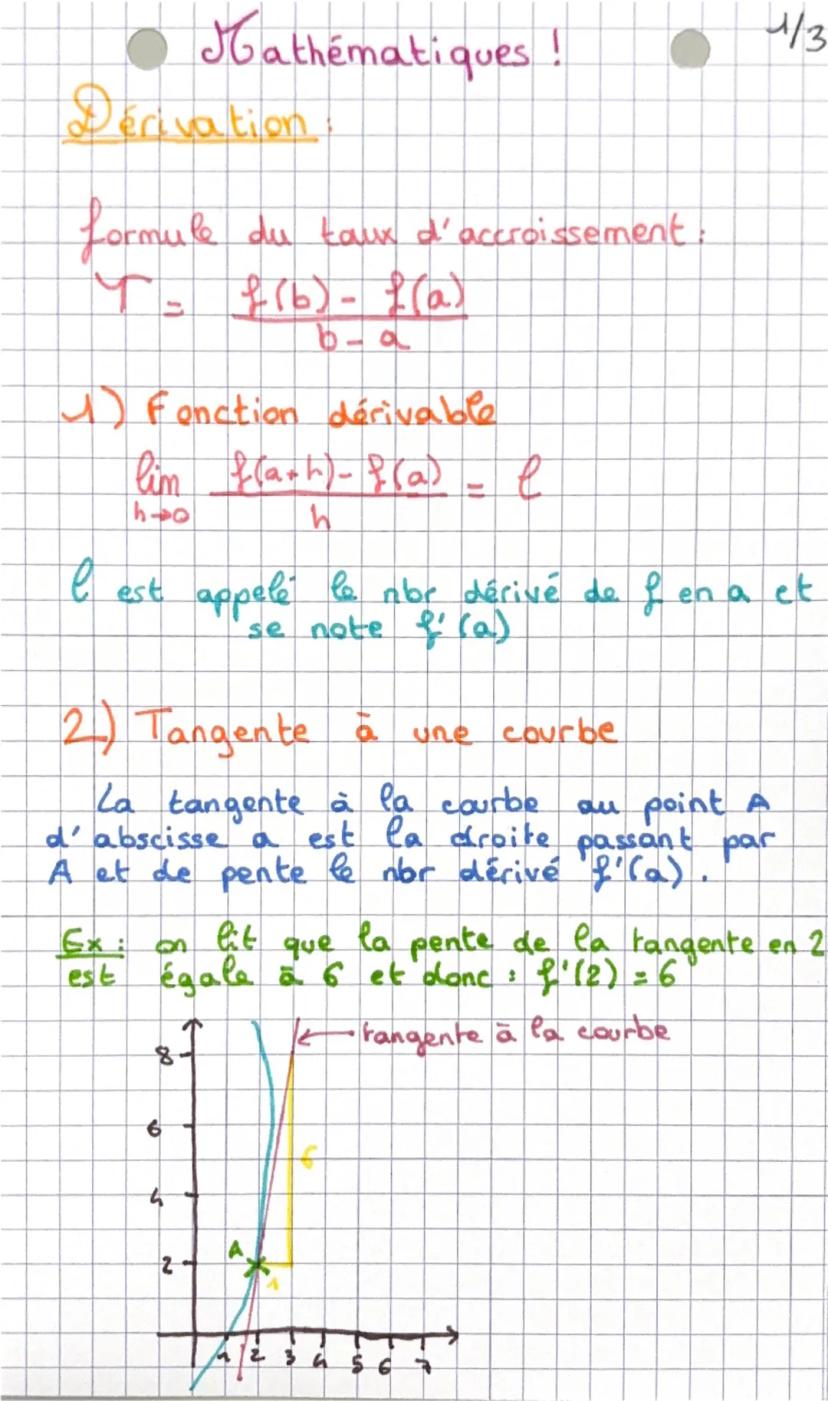 Mathématiques !
1/3
Dérivation :
formule du taux d'accroissement :
T = f(b) - f(a) / b - a
1) Fonction dérivable
lim h→0 f(a+h) - f(a) / h = l
l est appelé le nbr dérivé de f en a et
se note f'(a)
2) Tangente à une courbe
La tangente à la courbe au point A
d'abscisse a est la droite passant par
A et de pente le nbr dérivé f'(a).
Ex : on lit que la pente de la tangente en 2
est égale à 6 et donc : f'(2) = 6
tangente à la courbe
8
6
6
4
A
2
1
1 2 3 4 5 6 7